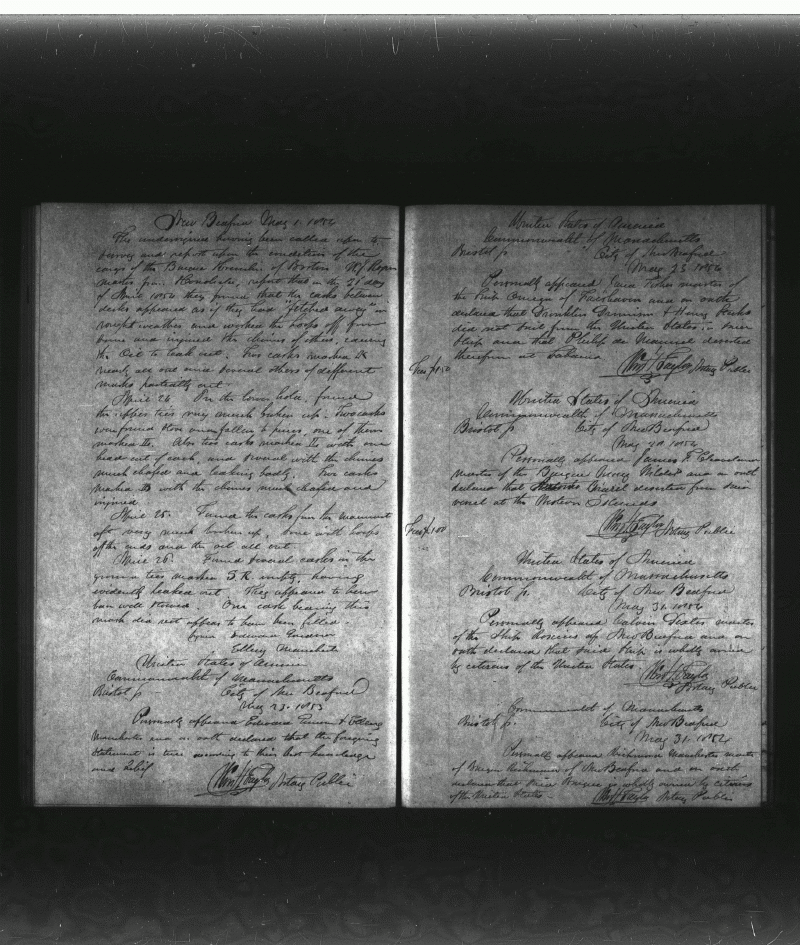 New Bedford May 1. 1854
The undersigned having been called upon to
survey and report upon the condition of the
cargo of the Barque of Boston
master for Honolulu, report that on the 21 day
of April 1854 they found that the casks between
decks appeared as if they had "fetched away" in
rough weather and worked the hoops off from
some and injured the chimes of others, causing
the Oil to leak out. Two casks marked
nearly all out and several others of different
marks partially out.
April 24 In the lower hold, found
the upper tier very much broken up. Two casks
were found stove and fallen to pieces, one of them
marked Also two casks marked with one
head out of each, and several with the chimes
much chafed and leaking badly. Two casks
marked with the chimes much chafed and
injured
April 25. Found the casks from the mainmast
aft very much broken up, some with hoops
off the ends and the oil all out
April 26 Found several casks in the
ground tier marked S.R. empty, having
evidently leaked out. They appeared to have
been well stowed. One cask bearing this
mark did not appear to have been filled.
signed Edward
Ellery Manchester
United States of America
Commonwealth of Massachusetts
Bristol ss City of New Bedford
May 23. 1853
Personally appeared Edward & Ellery
Manchester and on oath declared that the foregoing
statement is true according to their best knowledge
and belief
Notary Public
United States of America
Commonwealth of Massachusetts
Bristol ss City of New Bedford
May 25 1854
Personally appeared master of
the Ship Omega of Fairhaven and on oath
declared that Franklin & Henry
did not sail from the United States in said
Ship and that Philip deserted
therefrom at Lahaina
Fees $1.50
Notary Public
United States of America
Commonwealth of Massachusetts
Bristol ss City of New Bedford
May 1854
Personally appeared James
master of the Barque and on oath
declared that deserted from said
vessel at the Islands
Fees $1.00
Notary Public
United States of America
Commonwealth of Massachusetts
Bristol ss. City of New Bedford
May 31. 1854
Personally appeared Calvin master
of the Ship Roscius of New Bedford and on
oath declared that said Ship is wholly owned
by citizens of the United States
Notary Public
Commonwealth of Massachusetts
Bristol ss. City of New Bedford
May 31. 1854
Personally appeared Manchester master
of Barque of New Bedford and on oath
declared that said Barque is wholly owned by citizens
of the United States
Notary Public